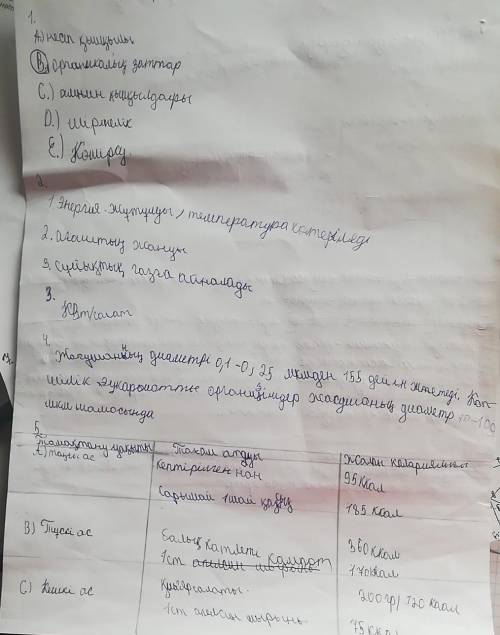 1.
A) несеп қышқылы
B) органикалық заттар
C.) амин қышқылдары
D.) шірінелік
E.) Көмірсу
2.
1 Энергия жұтылды, температура көтеріледі
2. ағаштың жануы
3. сұйықтық газға айналады
3.
КВт/сағат
4.
Жасушаның диаметрі 0,1-0,25 мкмден 155 дейін жетеді. Көп-
шілік эукариотты организмдер жасушаның диаметр 10-100
мкм шамасында
5.
Тамақтану уақыты Тағам атауы Жалпы калориялығы
A) таңғы ас Кептірілген нан 95 Ккал
Сарымай 1 шай қасық 185 Ккал
B) Түскі ас Балық котлеті 360 Ккал
1 ст компот 170 Ккал
C) Кешкі ас 200 гр/ 120 Ккал
1 ст апельсин шырыны 75 Ккал